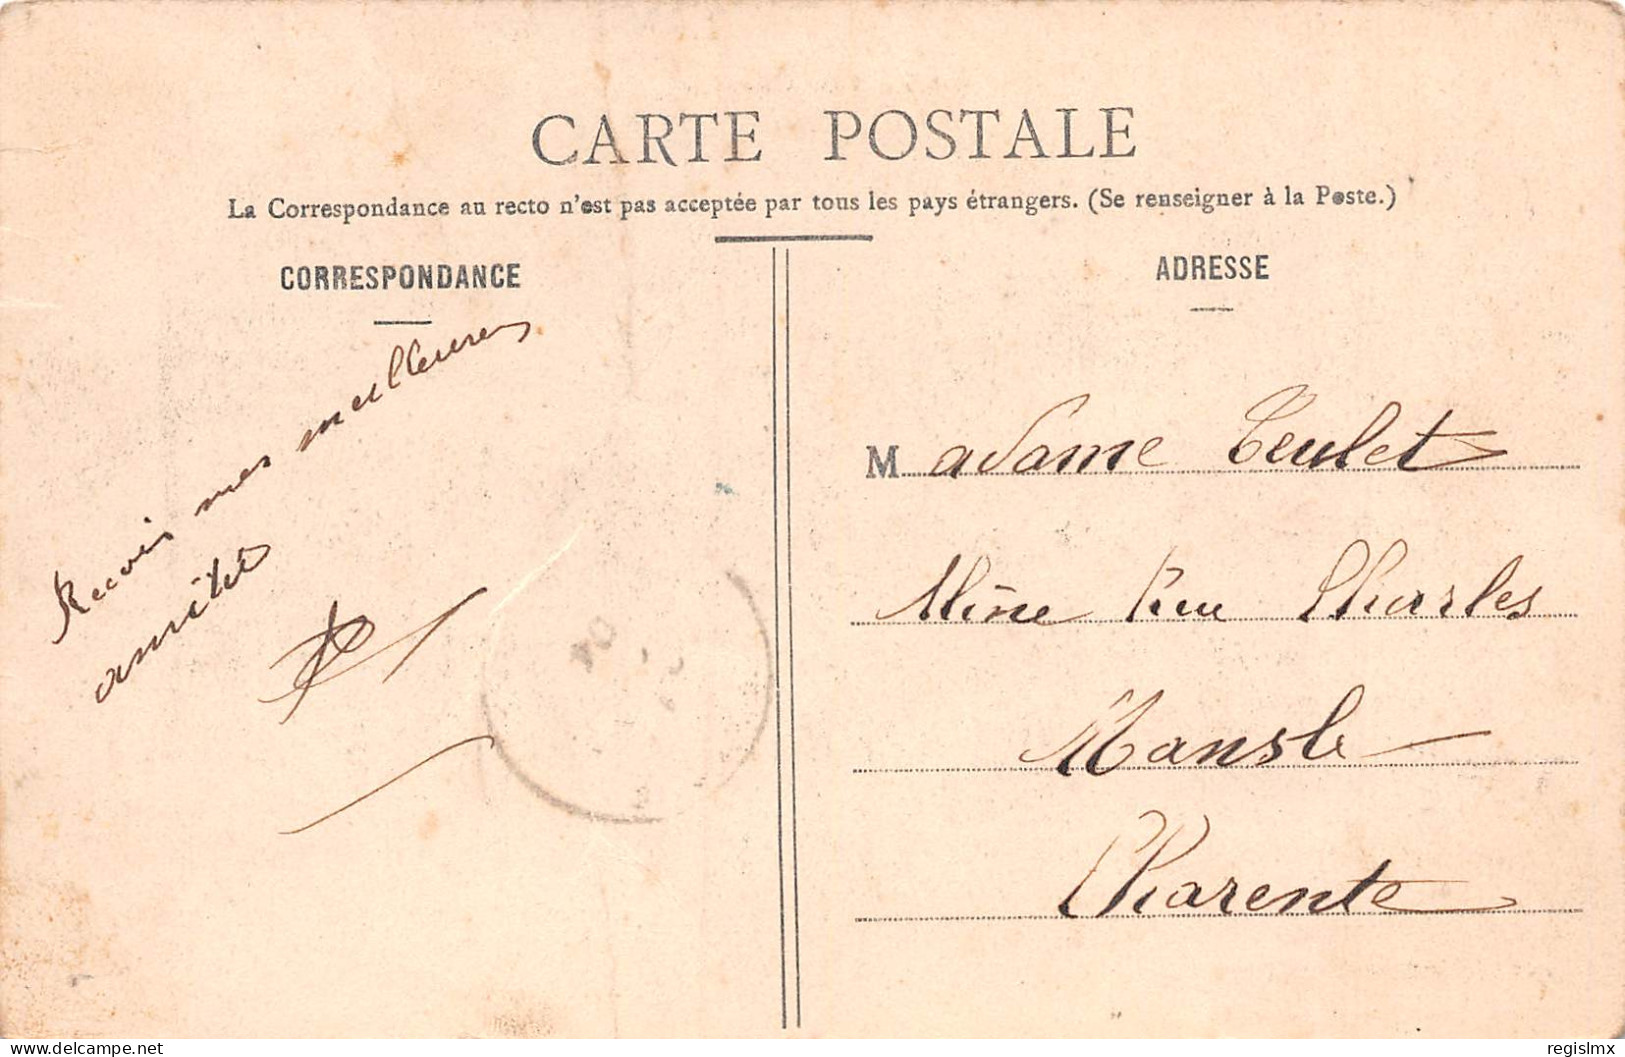 CARTE POSTALE
La Correspondance au recto n'est pas acceptée par tous les pays étrangers. (Se renseigner à la Poste.)
CORRESPONDANCE
Recois mes meilleures
amities
ADRESSE
Madame Teulet
Aline Rue Charles
Mansle
Charente
delcampe.net
regislmx